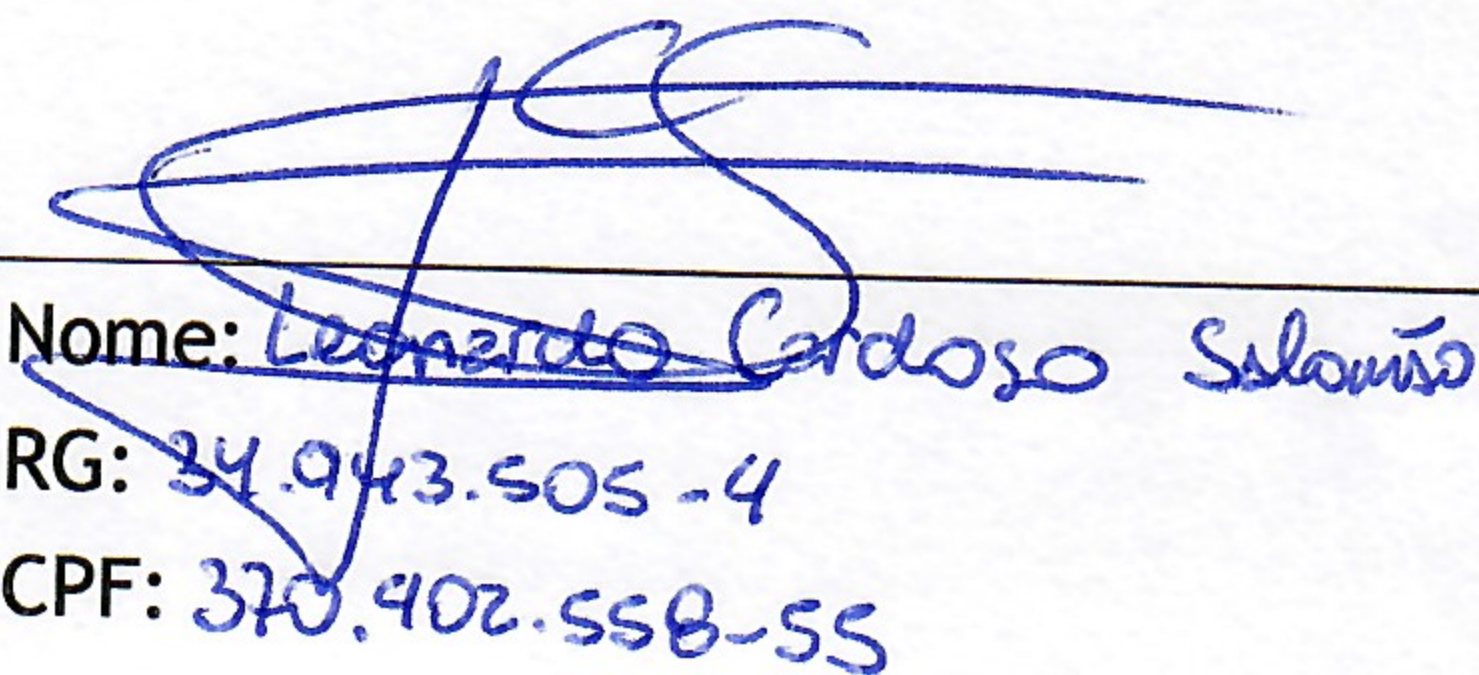 Nome: Leonardo Cardoso Salomão
RG: 34.943.505-4
CPF: 370.902.558-55